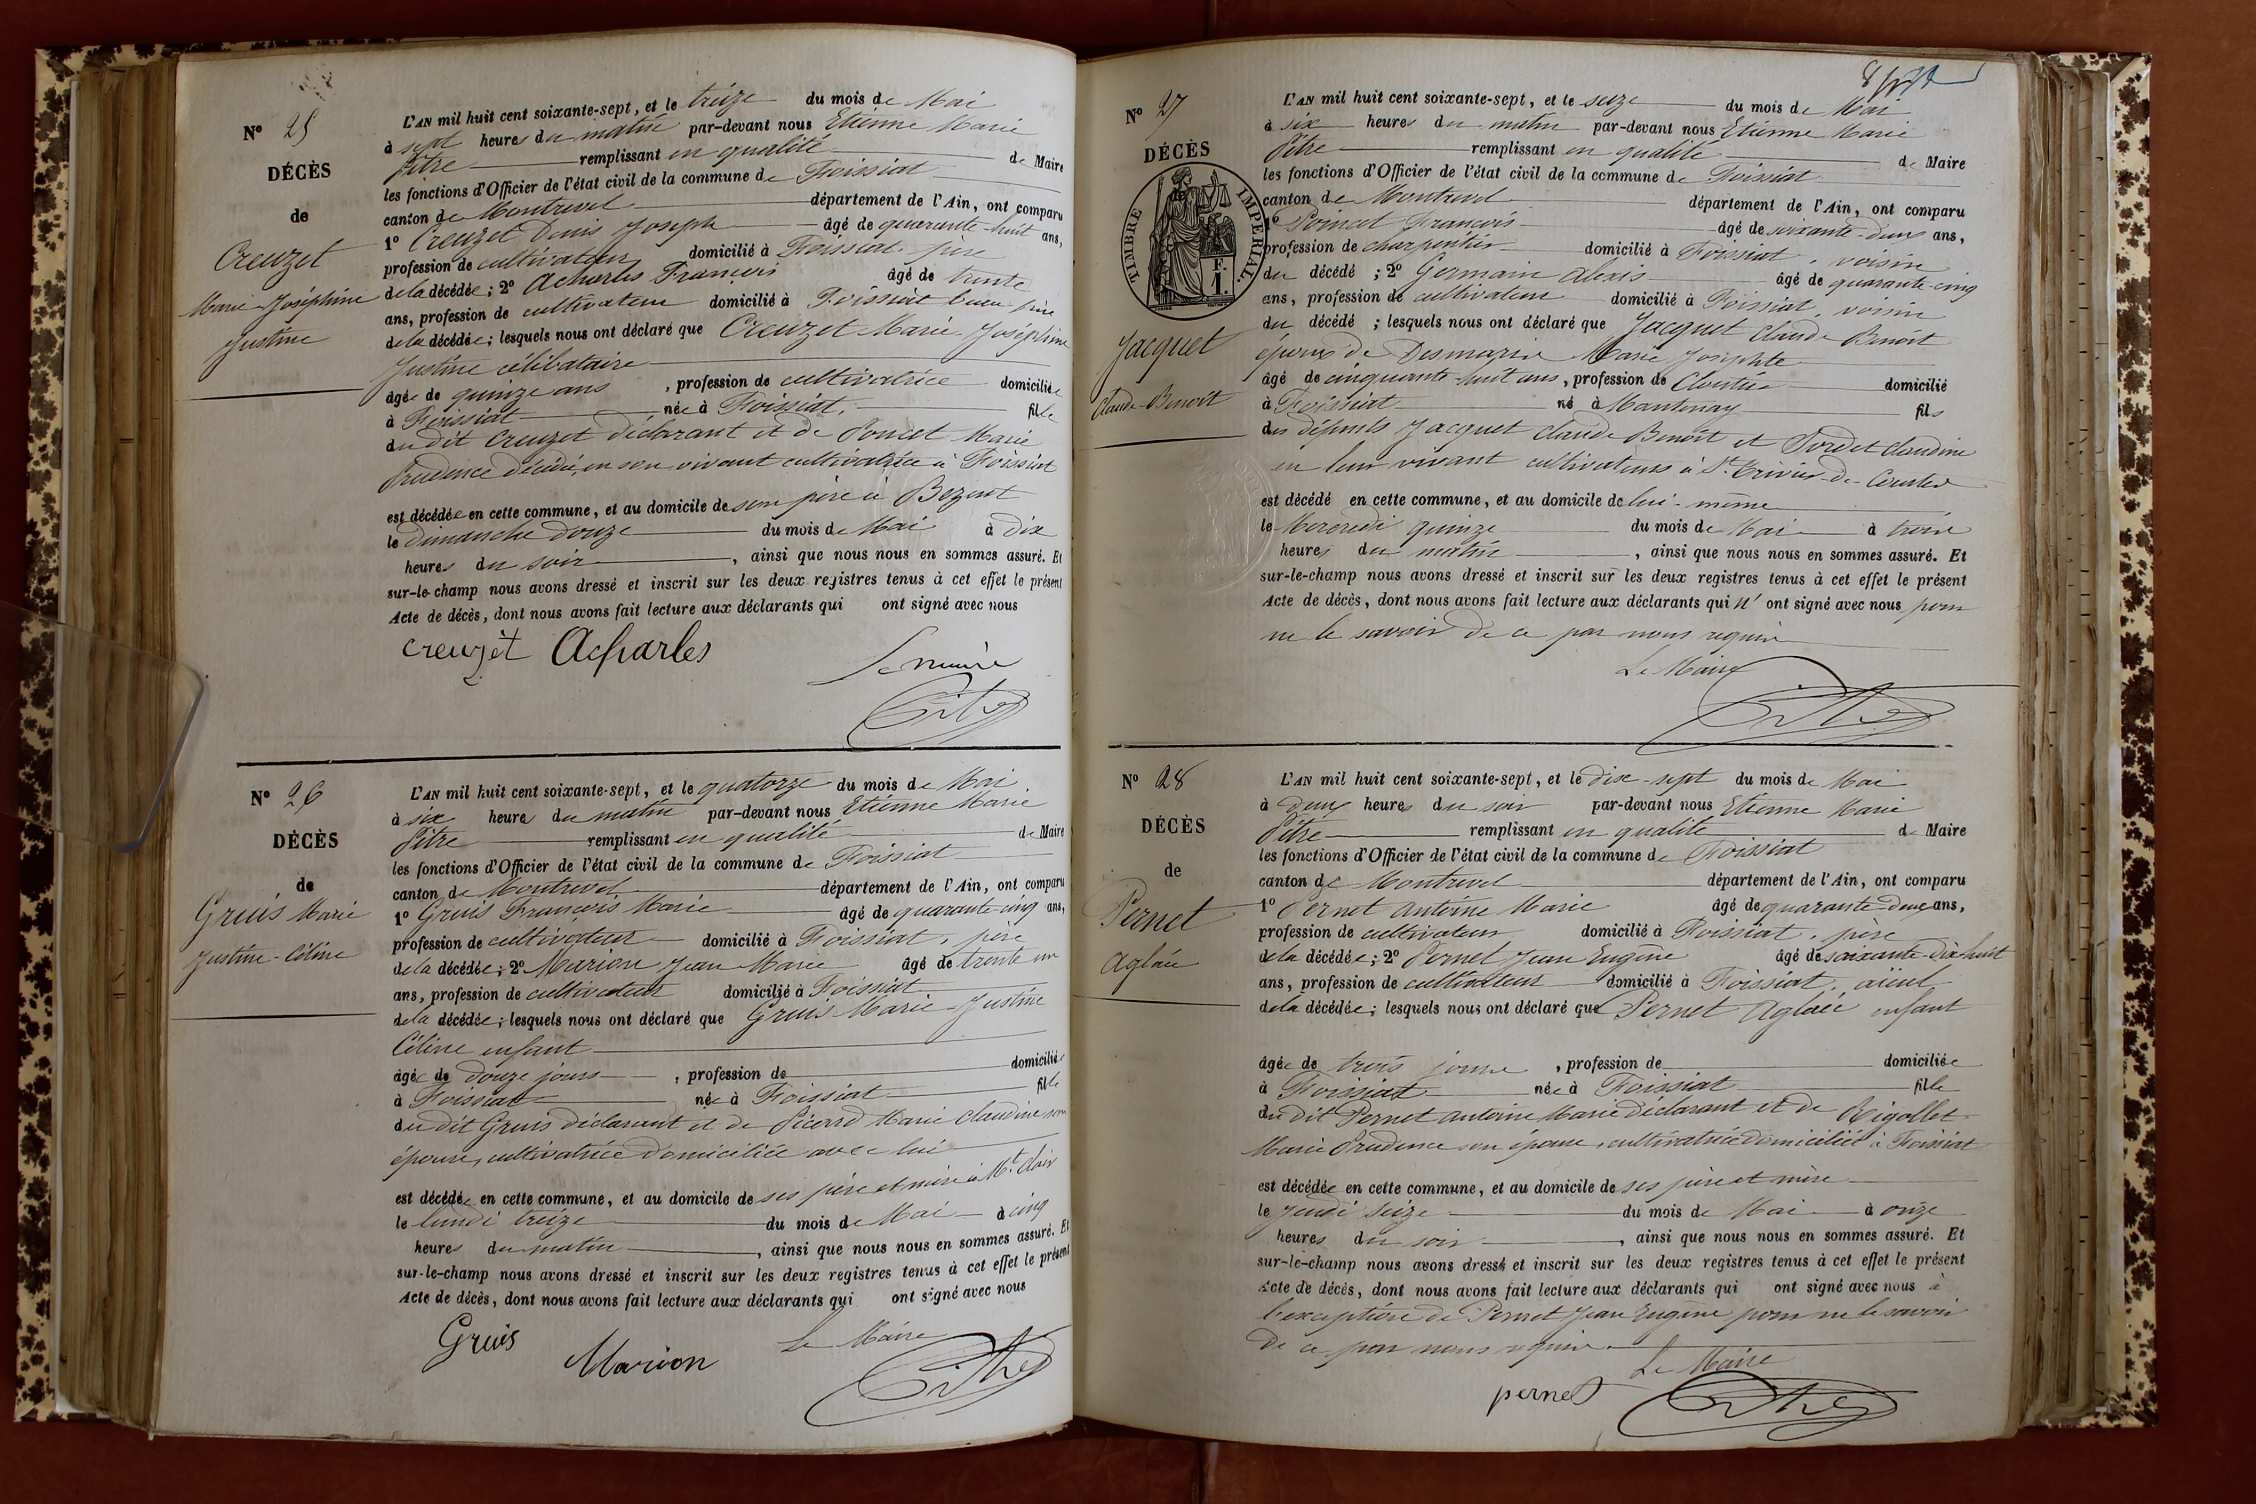 N° 25
DÉCÈS
de
Creuzet
Marie Joséphine
Justine
L'AN mil huit cent soixante-sept, et le treize du mois de Mai
à sept heures du matin par-devant nous Etienne Marie
Pitre remplissant en qualité de Maire
les fonctions d'Officier de l'état civil de la commune de Foissiat
canton de Montrevel département de l'Ain, ont comparu
1° Creuzet Denis Joseph âgé de quarante-huit ans,
profession de cultivateur domicilié à Foissiat père
de la décédée; 2° Acharles François âgé de trente
ans, profession de cultivateur domicilié à Foissiat beau père
de la décédée; lesquels nous ont déclaré que Creuzet Marie-Joséphine
Justine célibataire
âgée de quinze ans, profession de cultivatrice domiciliée
à Foissiat née à Foissiat, fille
du dit Creuzet déclarant et de Poncet Marie
Prudence décédée, en son vivant cultivatrice à Foissiat
est décédée en cette commune, et au domicile de son père à Bezent
le dimanche douze du mois de Mai à dix
heures du soir, ainsi que nous nous en sommes assuré. Et
sur-le-champ nous avons dressé et inscrit sur les deux registres tenus à cet effet le présent
Acte de décès, dont nous avons fait lecture aux déclarants qui ont signé avec nous
creuzet Acharles
Le maire
Pitre
N° 26
DÉCÈS
de
Gruis Marie
Justine-Céline
L'AN mil huit cent soixante-sept, et le quatorze du mois de Mai
à six heures du matin par-devant nous Etienne Marie
Pitre remplissant en qualité de Maire
les fonctions d'Officier de l'état civil de la commune de Foissiat
canton de Montrevel département de l'Ain, ont comparu
1° Gruis François Marie âgé de quarante-cinq ans,
profession de cultivateur domicilié à Foissiat, père
de la décédée; 2° Marion Jean Marie âgé de trente un
ans, profession de cultivateur domicilié à Foissiat
de la décédée; lesquels nous ont déclaré que Gruis Marie-Justine
Céline enfant
âgée de douze jours, profession de domiciliée
à Foissiat née à Foissiat fille
du dit Gruis déclarant et de Picard Marie Claudine son
épouse, cultivatrice domiciliée avec lui
est décédée en cette commune, et au domicile de ses père et mère à Mt Clair
le lundi treize du mois de Mai à cinq
heures du matin, ainsi que nous nous en sommes assuré. Et
sur-le-champ nous avons dressé et inscrit sur les deux registres tenus à cet effet le présent
Acte de décès, dont nous avons fait lecture aux déclarants qui ont signé avec nous
Gruis Marion
Le Maire
Pitre
N° 27
DÉCÈS
TIMBRE IMPERIAL
F.
1.
Jacquet
Claude-Benoit
L'AN mil huit cent soixante-sept, et le seize du mois de Mai
à six heures du matin par-devant nous Etienne Marie
Pitre remplissant en qualité de Maire
les fonctions d'Officier de l'état civil de la commune de Foissiat
canton de Montrevel département de l'Ain, ont comparu
1° Poincet François âgé de soixante-deux ans,
profession de charpentier domicilié à Foissiat, voisin
du décédé; 2° Germain Alexis âgé de quarante-cinq
ans, profession de cultivateur domicilié à Foissiat, voisin
du décédé; lesquels nous ont déclaré que Jacquet Claude Benoit
époux de Desmaris Marie Josephte
âgé de cinquante-huit ans, profession de Cloutier domicilié
à Foissiat né à Mantenay fils
des défunts Jacquet Claude Benoit et Pordet Claudine
en leur vivant cultivateurs à St Trivier-de-Courtes
est décédé en cette commune, et au domicile de lui-même
le Mercredi quinze du mois de Mai à trois
heures du matin, ainsi que nous nous en sommes assuré. Et
sur-le-champ nous avons dressé et inscrit sur les deux registres tenus à cet effet le présent
Acte de décès, dont nous avons fait lecture aux déclarants qui n'ont signé avec nous pour
ne le savoir de ce par nous requis
Le Maire
Pitre
N° 28
DÉCÈS
de
Pernet
Aglaée
L'AN mil huit cent soixante-sept, et le dix-sept du mois de Mai
à deux heures du soir par-devant nous Etienne Marie
Pitre remplissant en qualité de Maire
les fonctions d'Officier de l'état civil de la commune de Foissiat
canton de Montrevel département de l'Ain, ont comparu
1° Pernet Antoine Marie âgé de quarante-deux ans,
profession de cultivateur domicilié à Foissiat, père
de la décédée; 2° Pernet Jean Eugène âgé de soixante-dix-huit
ans, profession de cultivateur domicilié à Foissiat, aïeul
de la décédée; lesquels nous ont déclaré que Pernet Aglaée enfant
âgée de trois jours, profession de domiciliée
à Foissiat née à Foissiat fille
du dit Pernet Antoine Marie déclarant et de Rigollet
Marie Prudence son épouse, cultivatrice domiciliée à Foissiat
est décédée en cette commune, et au domicile de ses père et mère
le Jeudi seize du mois de Mai à onze
heures du soir, ainsi que nous nous en sommes assuré. Et
sur-le-champ nous avons dressé et inscrit sur les deux registres tenus à cet effet le présent
Acte de décès, dont nous avons fait lecture aux déclarants qui ont signé avec nous à
l'exception de Pernet Jean Eugène pour ne le savoir
de ce par nous requis.
Le Maire
pernet Pitre